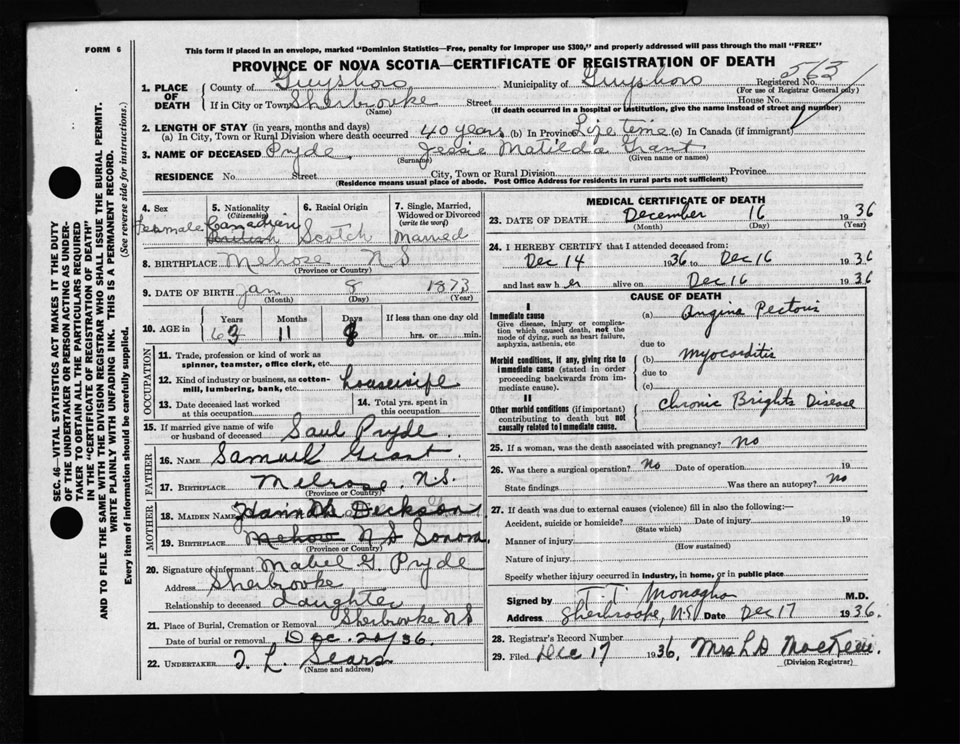 FORM 6
This form if placed in an envelope, marked "Dominion Statistics—Free, penalty for improper use $300," and properly addressed will pass through the mail "FREE"
PROVINCE OF NOVA SCOTIA—CERTIFICATE OF REGISTRATION OF DEATH
SEC. 46—VITAL STATISTICS ACT MAKES IT THE DUTY
OF THE UNDERTAKER OR PERSON ACTING AS UNDER-
TAKER TO OBTAIN ALL THE PARTICULARS REQUIRED
IN THE "CERTIFICATE OF REGISTRATION OF DEATH"
AND TO FILE THE SAME WITH THE DIVISION REGISTRAR WHO SHALL ISSUE THE BURIAL PERMIT.
WRITE PLAINLY WITH UNFADING INK. THIS IS A PERMANENT RECORD.
Every item of information should be carefully supplied. (See reverse side for instructions.)
1. PLACE OF DEATH County of Guysboro Municipality of Guysboro Registered No. 563
(For use of Registrar General only)
If in City or Town Sherbrooke Street House No.
(Name) (If death occurred in a hospital or institution, give the name instead of street and number)
2. LENGTH OF STAY (in years, months and days)
(a) In City, Town or Rural Division where death occurred 40 years (b) In Province Life time (c) In Canada (if immigrant)
3. NAME OF DECEASED Pryde Jessie Matilda Grant
(Surname) (Given name or names)
RESIDENCE No. Street City, Town or Rural Division Province
(Residence means usual place of abode. Post Office Address for residents in rural parts not sufficient)
4. Sex 5. Nationality (Citizenship) 6. Racial Origin 7. Single, Married, Widowed or Divorced (write the word)
Female Canadian Scotch Married
8. BIRTHPLACE N S
(Province or Country)
9. DATE OF BIRTH Jan 8 1873
(Month) (Day) (Year)
10. AGE in Years Months Days If less than one day old
63 11 8 hrs. or min.
OCCUPATION
11. Trade, profession or kind of work as spinner, teamster, office clerk, etc.
12. Kind of industry or business, as cotton-mill, lumbering, bank, etc. housewife
13. Date deceased last worked at this occupation 14. Total yrs. spent in this occupation
15. If married give name of wife or husband of deceased Saul Pryde
FATHER
16. NAME Samuel Grant
17. BIRTHPLACE Melrose, N.S.
(Province or Country)
MOTHER
18. MAIDEN NAME Hannah Dickson
19. BIRTHPLACE N S Sonora
(Province or Country)
20. Signature of informant Mabel G. Pryde
Address Sherbrooke
Relationship to deceased daughter
21. Place of Burial, Cremation or Removal Sherbrooke N S
Date of burial or removal Dec. 20/36
22. UNDERTAKER J. L. Sears
(Name and address)
MEDICAL CERTIFICATE OF DEATH
23. DATE OF DEATH December 16 1936
(Month) (Day) (Year)
24. I HEREBY CERTIFY that I attended deceased from:
Dec 14 1936 to Dec 16 1936
and last saw her alive on Dec 16 1936
CAUSE OF DEATH
I
Immediate cause
Give disease, injury or complication which caused death, not the mode of dying, such as heart failure, asphyxia, asthenia, etc
(a) Angina Pectoris
due to
Morbid conditions, if any, giving rise to immediate cause (stated in order proceeding backwards from immediate cause).
(b) Myocarditis
due to
(c)
II
Other morbid conditions (if important) contributing to death but not causally related to immediate cause.
Chronic Brights Disease
25. If a woman, was the death associated with pregnancy? No
26. Was there a surgical operation? No Date of operation 19
State findings Was there an autopsy? No
27. If death was due to external causes (violence) fill in also the following:—
Accident, suicide or homicide? Date of injury 19
(State which)
Manner of injury
(How sustained)
Nature of injury
Specify whether injury occurred in industry, in home, or in public place
Signed by T. T. Monaghan M.D.
Address Sherbrooke, N.S Date Dec 17 1936.
28. Registrar's Record Number
29. Filed Dec 17 1936, Mrs L D
(Division Registrar)